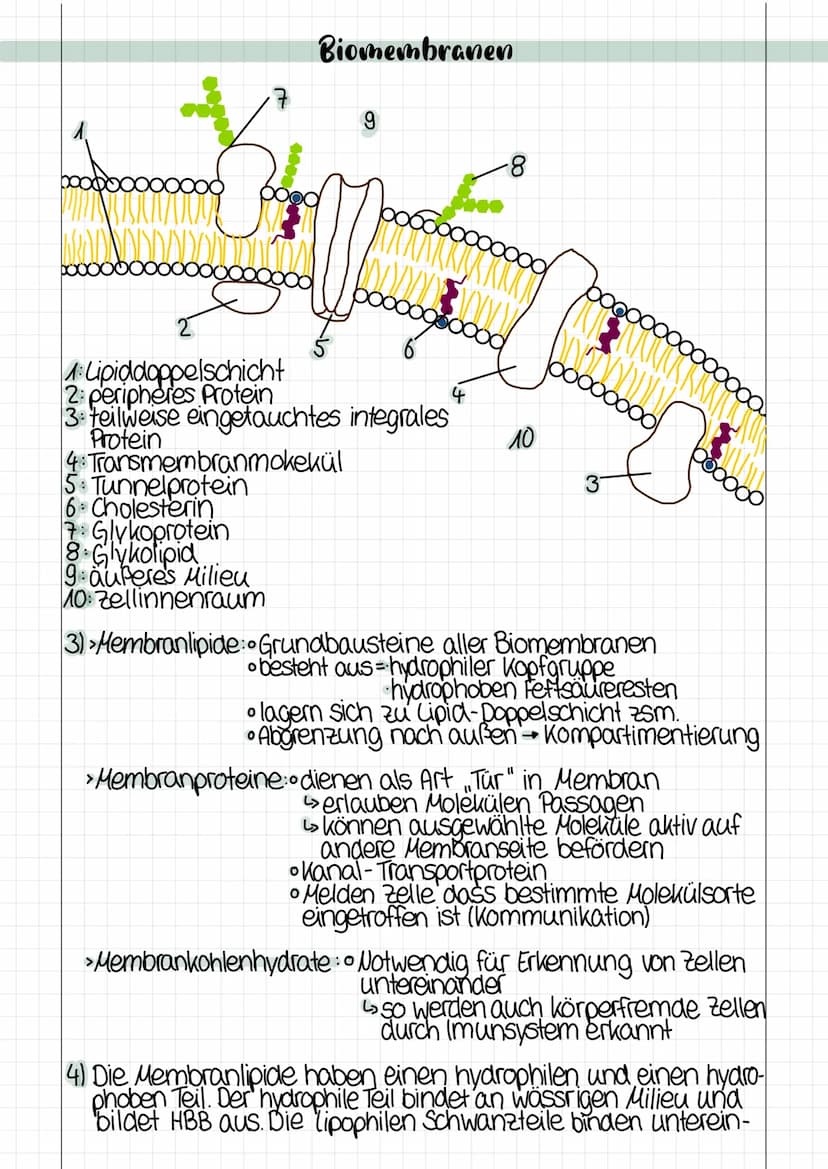 Biomembranen
7
9
1
8
2
5
6
4
10
3
1: Lipiddoppelschicht
2: peripheres Protein
3: teilweise eingetauchtes integrales
Protein
4: Transmembranmokekül
5: Tunnelprotein
6: Cholesterin
7: Glykoprotein
8: Glykolipid
9: äußeres Milieu
10: Zellinnenraum
3) >Membranlipide: ∘ Grundbausteine aller Biomembranen
∘ besteht aus = hydrophiler Kopfgruppe
· hydrophoben Fettsäureresten
∘ lagern sich zu Lipid-Doppelschicht zsm.
∘ Abgrenzung nach außen → Kompartimentierung
>Membranproteine: ∘ dienen als Art „Tür" in Membran
↳ erlauben Molekülen Passagen
↳ können ausgewählte Moleküle aktiv auf
andere Membranseite befördern
∘ Kanal- Transportprotein
∘ Melden Zelle dass bestimmte Molekülsorte
eingetroffen ist (Kommunikation)
>Membrankohlenhydrate: ∘ Notwendig für Erkennung von Zellen
untereinander
↳ so werden auch körperfremde Zellen
durch Imunsystem erkannt
4) Die Membranlipide haben einen hydrophilen und einen hydro-
phoben Teil. Der hydrophile Teil bindet an wässrigen Milieu und
bildet HBB aus. Die lipophilen Schwanzteile binden unterein-